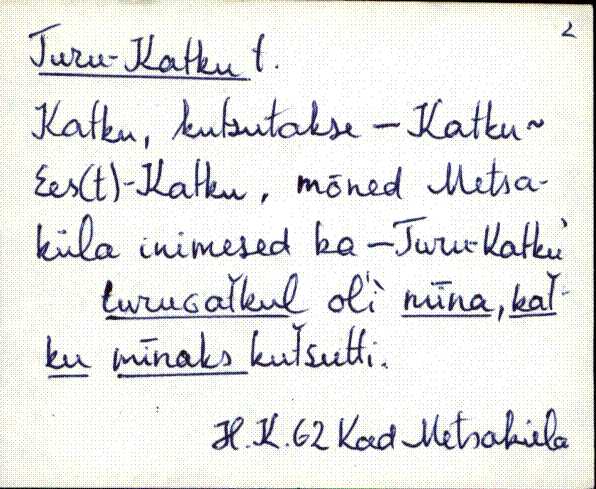 2
Turu-Katku t.
Katku, kutsutakse – Katku ~
Ees(t)-Katku, mõned Metsa-
küla inimesed ka – Turu-Katku
turuGat̆kul ol'i nīna, kat̆-
ku mīnaks kut̆sutti.
H.K. 62 Kad Metsaküla